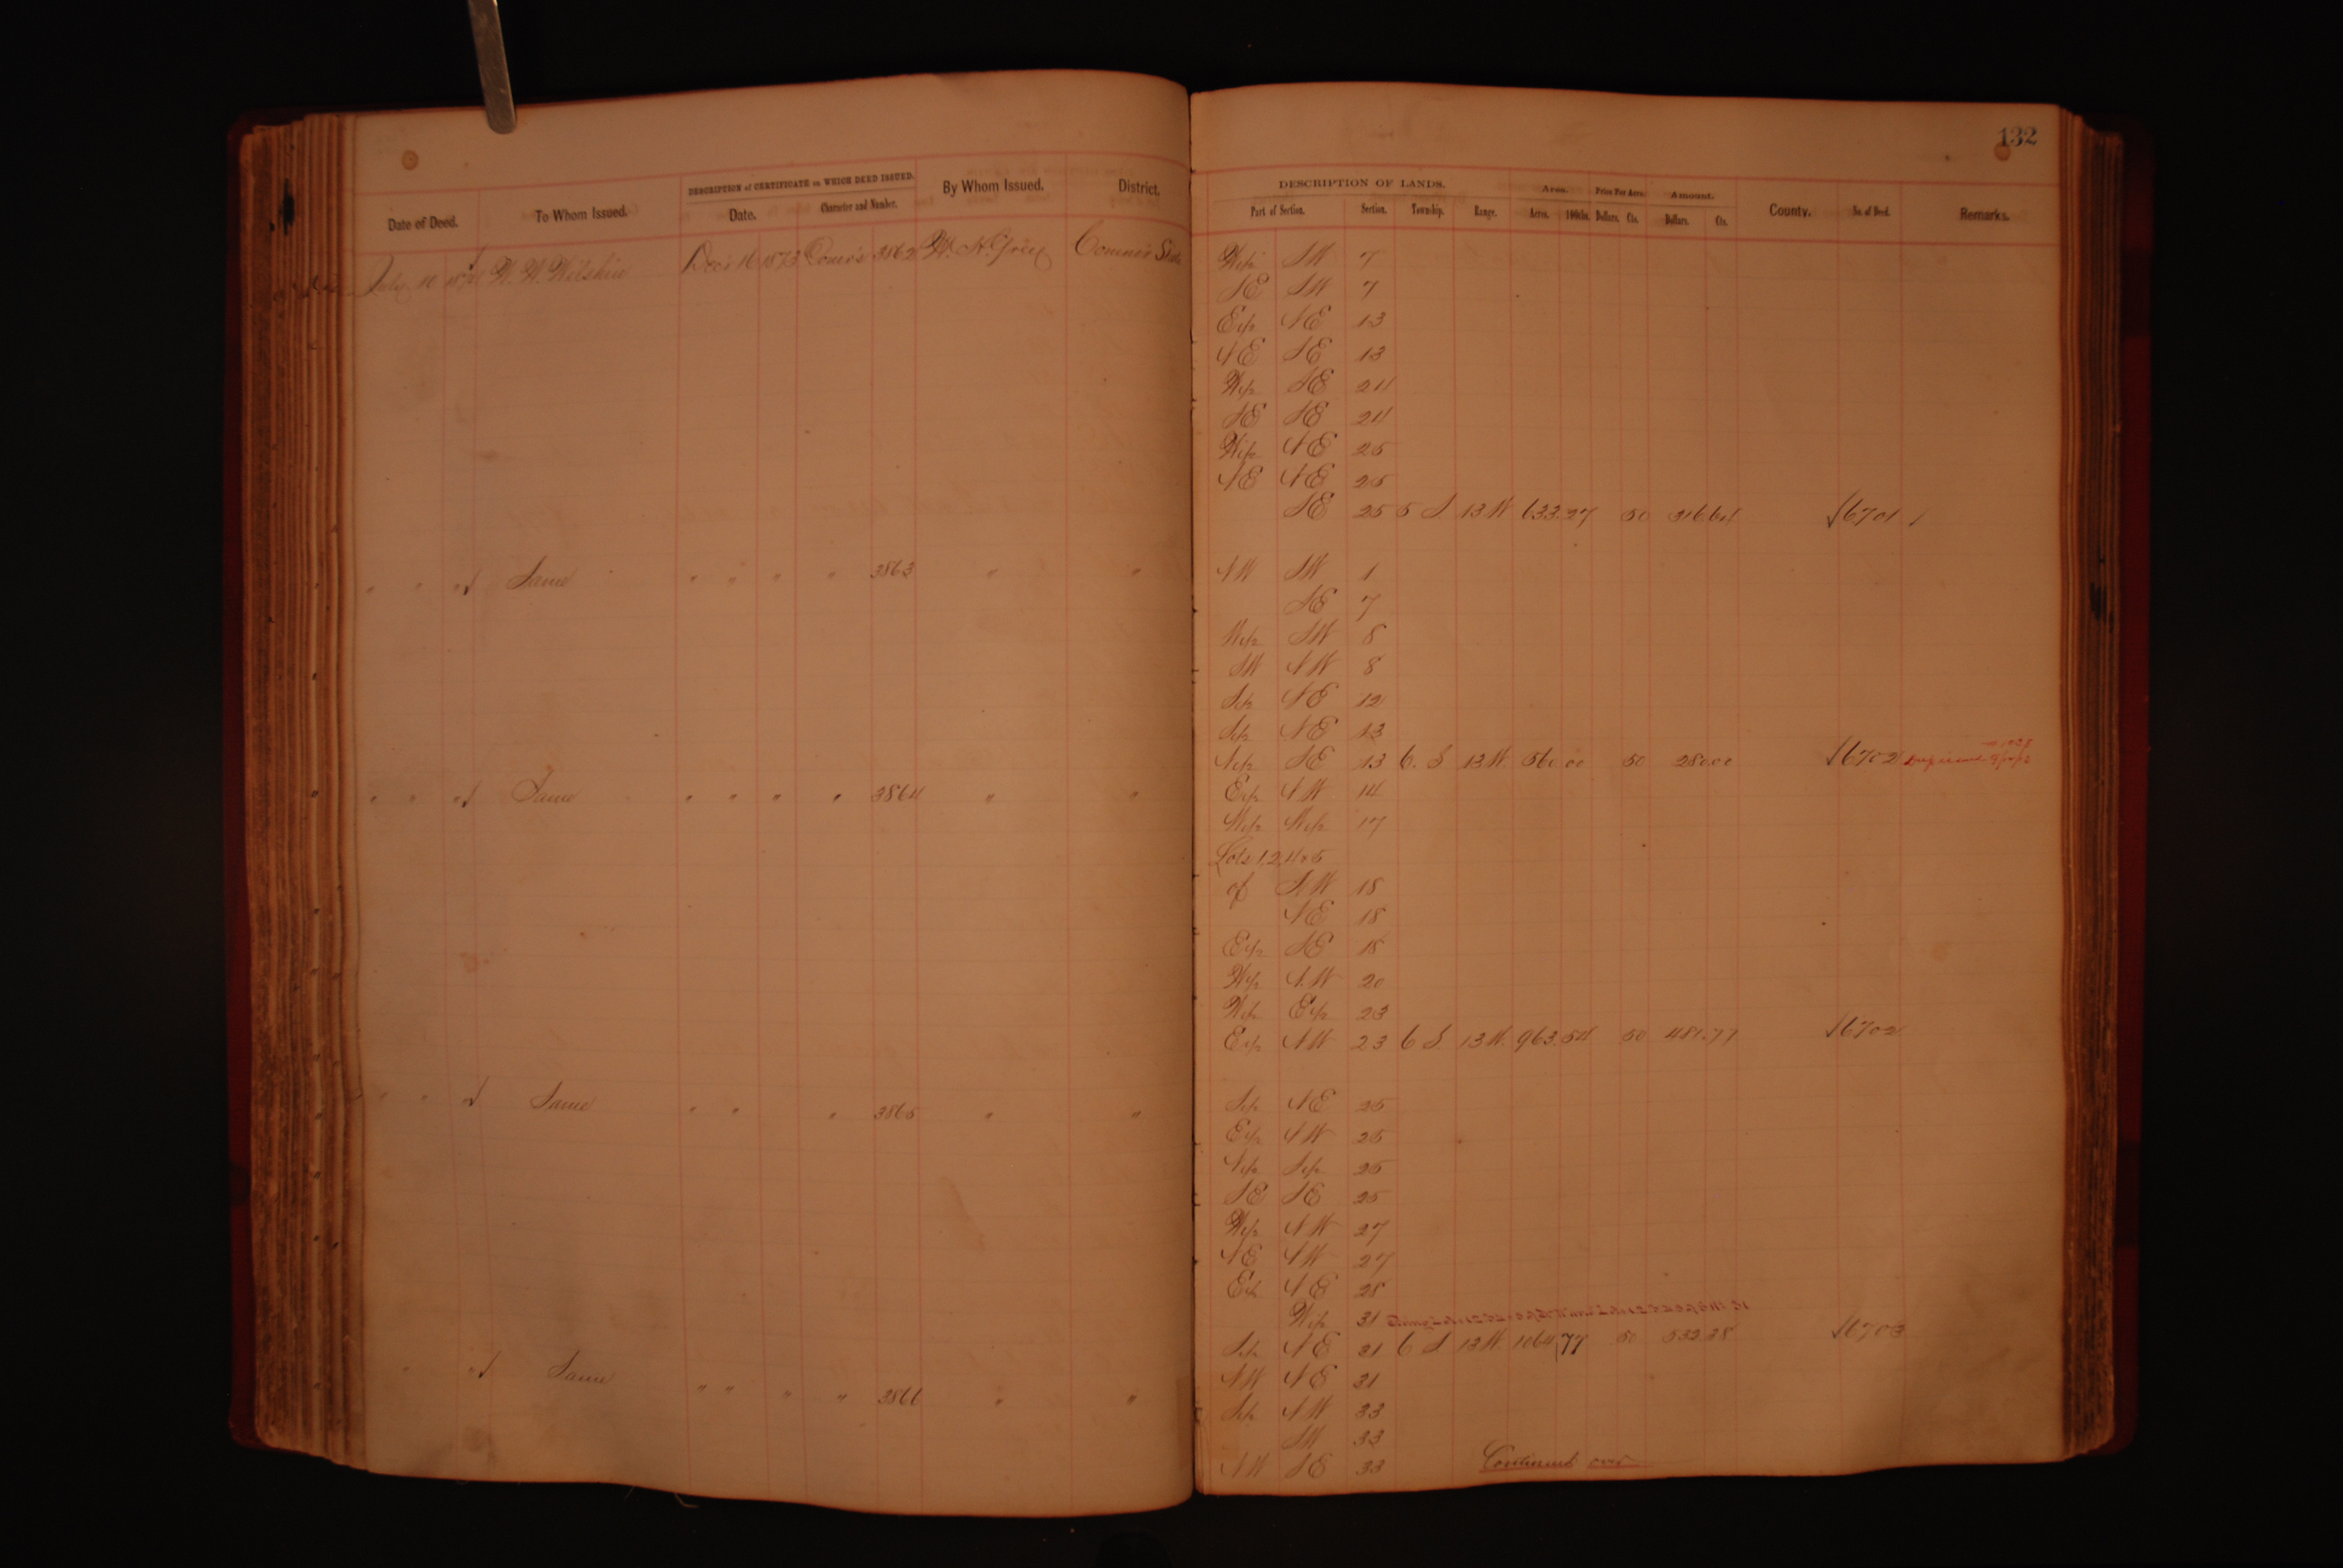 132
DESCRIPTION of CERTIFICATE on WHICH DEED ISSUED.
Date of Deed. To Whom Issued. Date. Character and Number. By Whom Issued. District.
DESCRIPTION OF LANDS. Area. Price Per Acre. Amount.
Part of Section. Section. Township. Range. Acres. 100ths. Dollars. Cts. Dollars. Cts. County. No. of Deed. Remarks.
July 10 W. W. Wilshire Dec 16 1873 Comr's 3862 W. N. Comr's State
W½ SW 7
SE SW 7
E½ NE 13
NE SE 13
W½ SE 24
SE SE 24
W½ NE 25
NE NE 25
SE 25 5 S. 13 W 633.27 50 316.64 6701
" " " Same " " " " 3863 " "
NW SW 1
SE 7
W½ SW 8
SW NW 8
S½ NE 12
S½ NE 13
N½ SE 13 6. S 13 W. 560 00 50 280.00 6702
" " " Same " " " " 3864 " "
E½ NW 14
W½ W½ 17
Lots 1, 2, 4 & 5
of SW 18
NE 18
E½ SE 18
W½ NW 20
W½ E½ 23
E½ NW 23 6 S. 13 W. 963.54 50 481.77 6702
" " " Same " " " 3865 " "
S½ NE 25
E½ NW 25
N½ S½ 25
SE SE 25
W½ NW 27
NE NW 27
E½ NE 28
W½ 31
S½ NE 31 6 S. 13 W. 1064 77 50 532.38 6703
" " Same " " " " 3866 " "
NW NE 31
S½ NW 33
SW 33
NW SE 33 Continued over